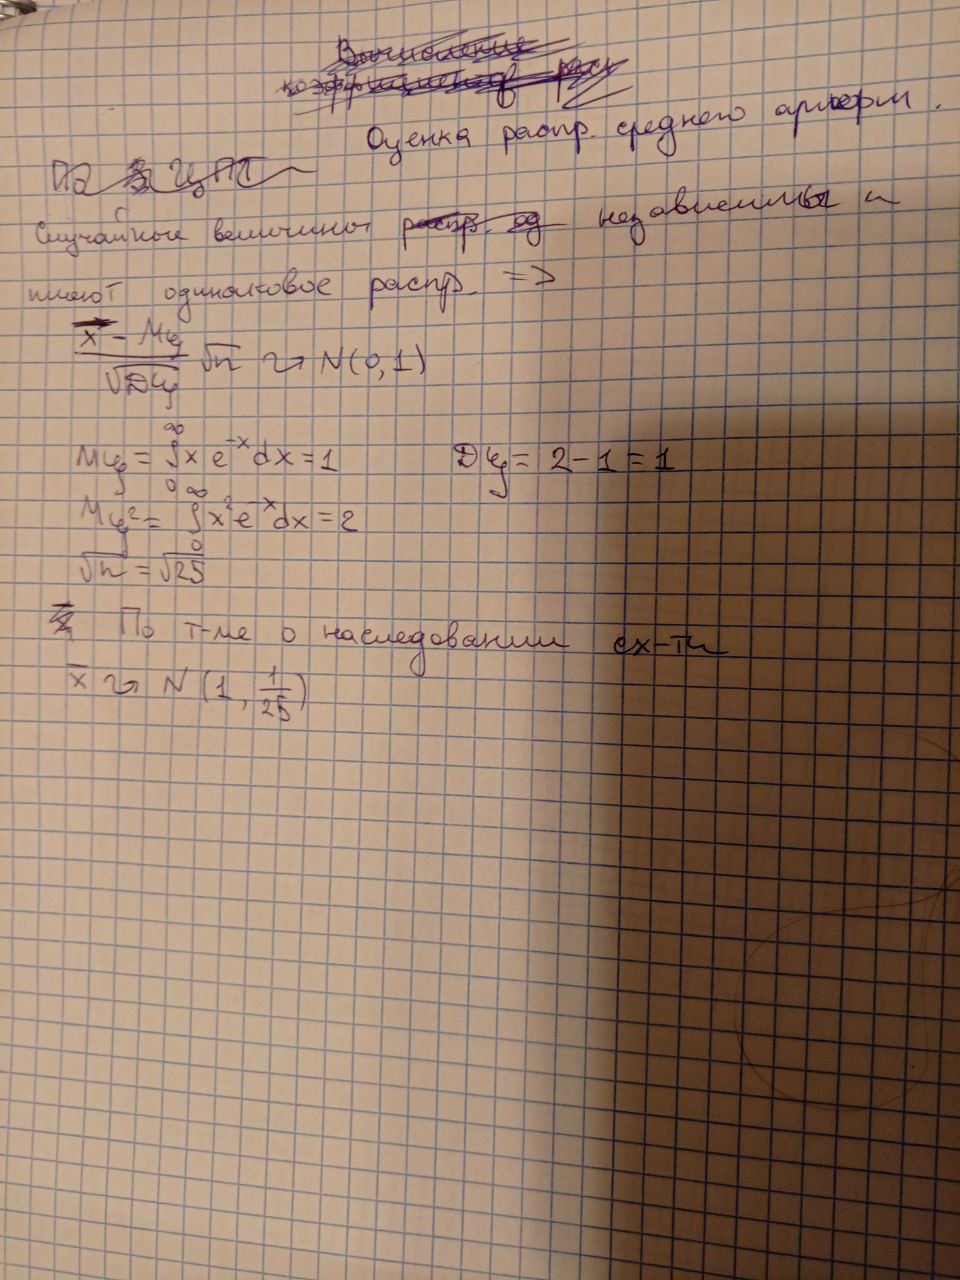 Вычисление
коэффициентов расп
Оценка распр. среднего арифм.
По ЦПТ
Случайные величины распр. од независимы и
имеют одинаковое распр. =>
(x̄ - Mξ)/√Dξ √n ⤳ N(0,1)
Mξ = ∫₀^∞ x e^{-x} dx = 1    Dξ = 2-1 = 1
Mξ² = ∫₀^∞ x² e^{-x} dx = 2
√n = √25
По т-ме о наследовании сх-ти
x̄ ⤳ N(1, 1/25)